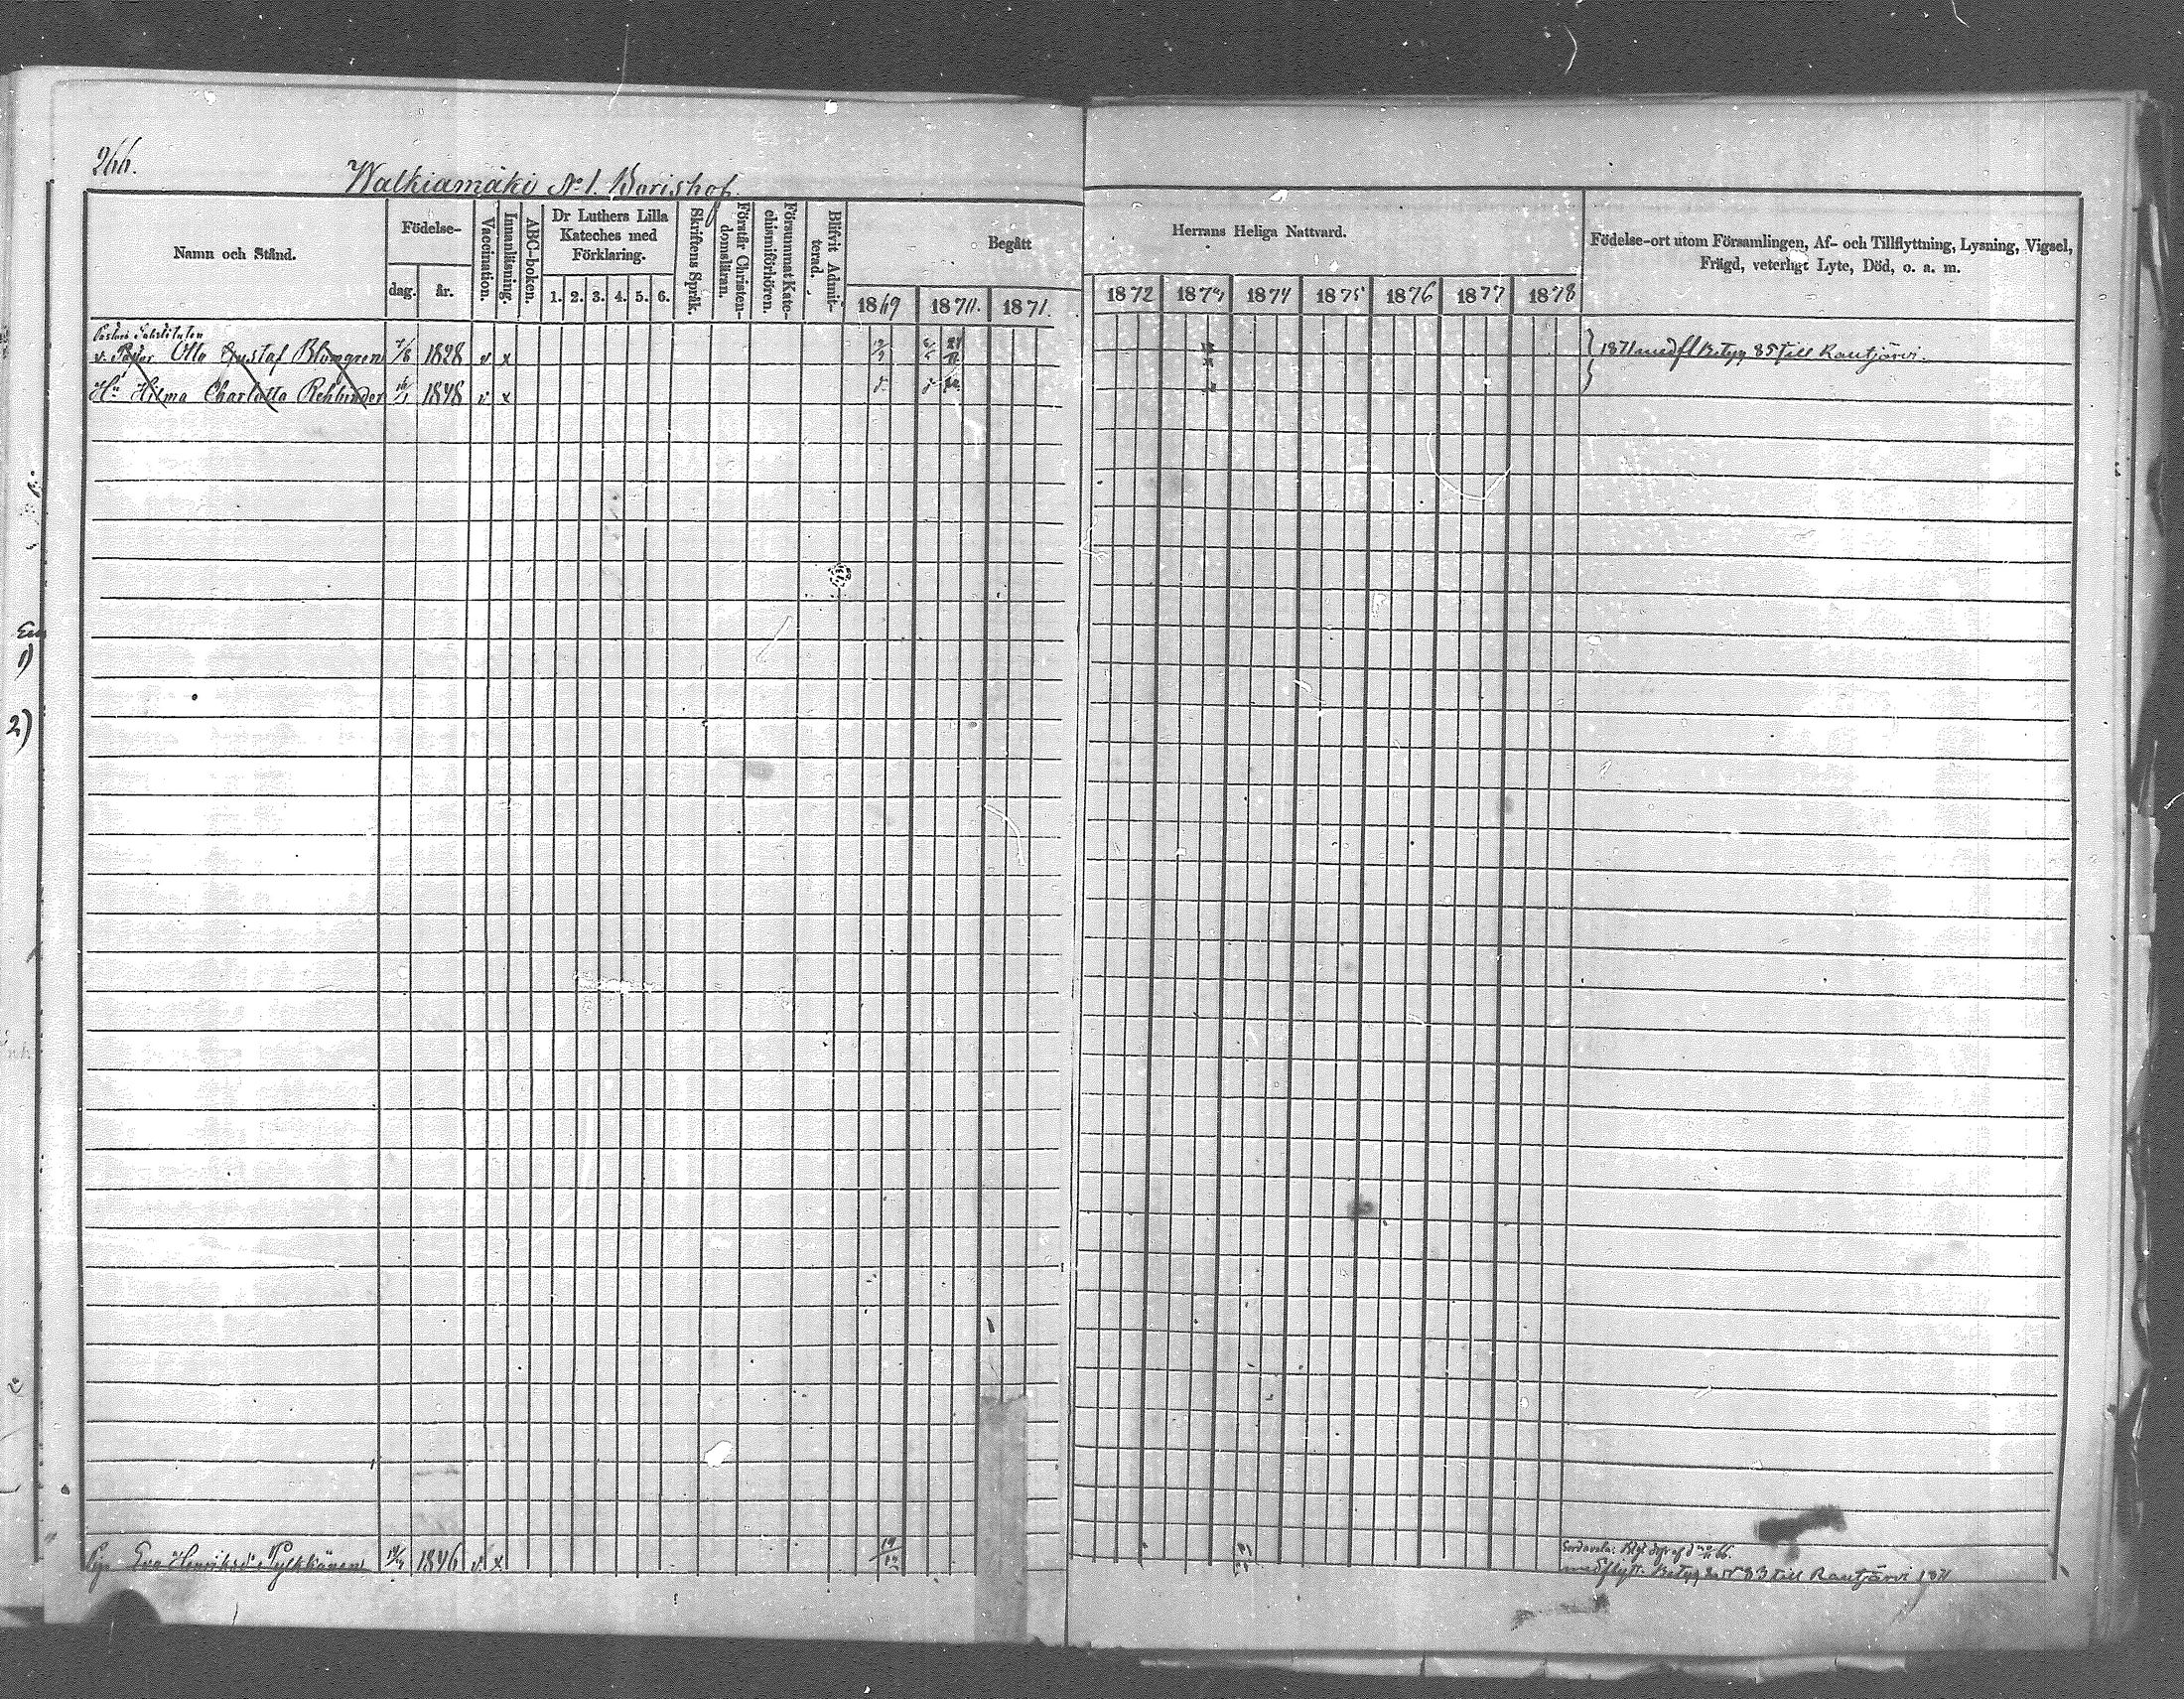 266.
Walkiamäki No 1. Borishof.
Namn och Stånd.
Födelse-
dag.
år.
Vaccination.
Innanläsning.
ABC-boken.
Dr Luthers Lilla
Kateches med
Förklaring.
1. 2. 3. 4. 5. 6.
Skriftens Språk.
Förstår Christen-
domsläran.
Försummat Kate-
chismiförhören.
Blifvit Admit-
terad.
Begått
Herrans Heliga Nattvard.
1869 1870. 1871.
1872 1873 1874 1875 1876 1877 1878
Födelse-ort utom Församlingen, Af- och Tillflyttning, Lysning, Vigsel,
Frägd, veterligt Lyte, Död, o. a. m.
Otto Gustaf Blomgren 1828 v x
1871 med fl Betyg 85 till Rautjärvi.
Hu Hilma Charlotta Rehbinder 1848 v x
Em
1)
2)
Pig. Eva Henriksd:r Pylkkänen 1846 v x
Sordavala
med flytt. Betyg 83 till Rautjärvi 1871